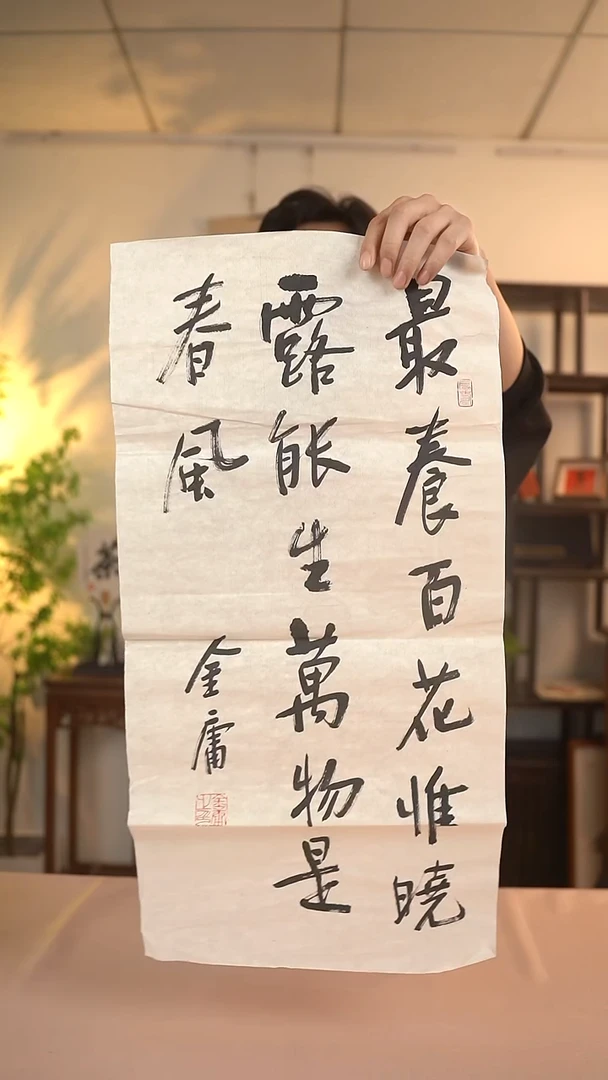 最養百花惟曉
露能生萬物是
春風
金庸